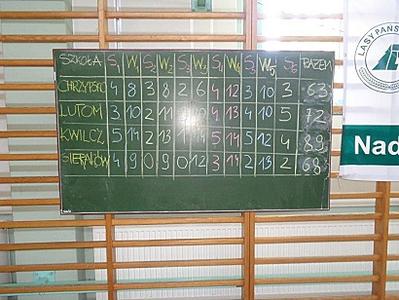 SZKOŁA S1 W1 S2 W2 S3 W3 S4 W4 S5 W5 S6 RAZEM
CHRZYPSKO 4 8 3 8 2 6 4 12 3 10 3 63
LUTOM 3 10 2 11 3 8 4 10 5 72
KWILCZ 5 14 2 13 1 14 5 5 12 4 89
SIERAKÓW 4 9 0 9 0 12 3 14 2 13 2 68
LASY PAŃS
Nad